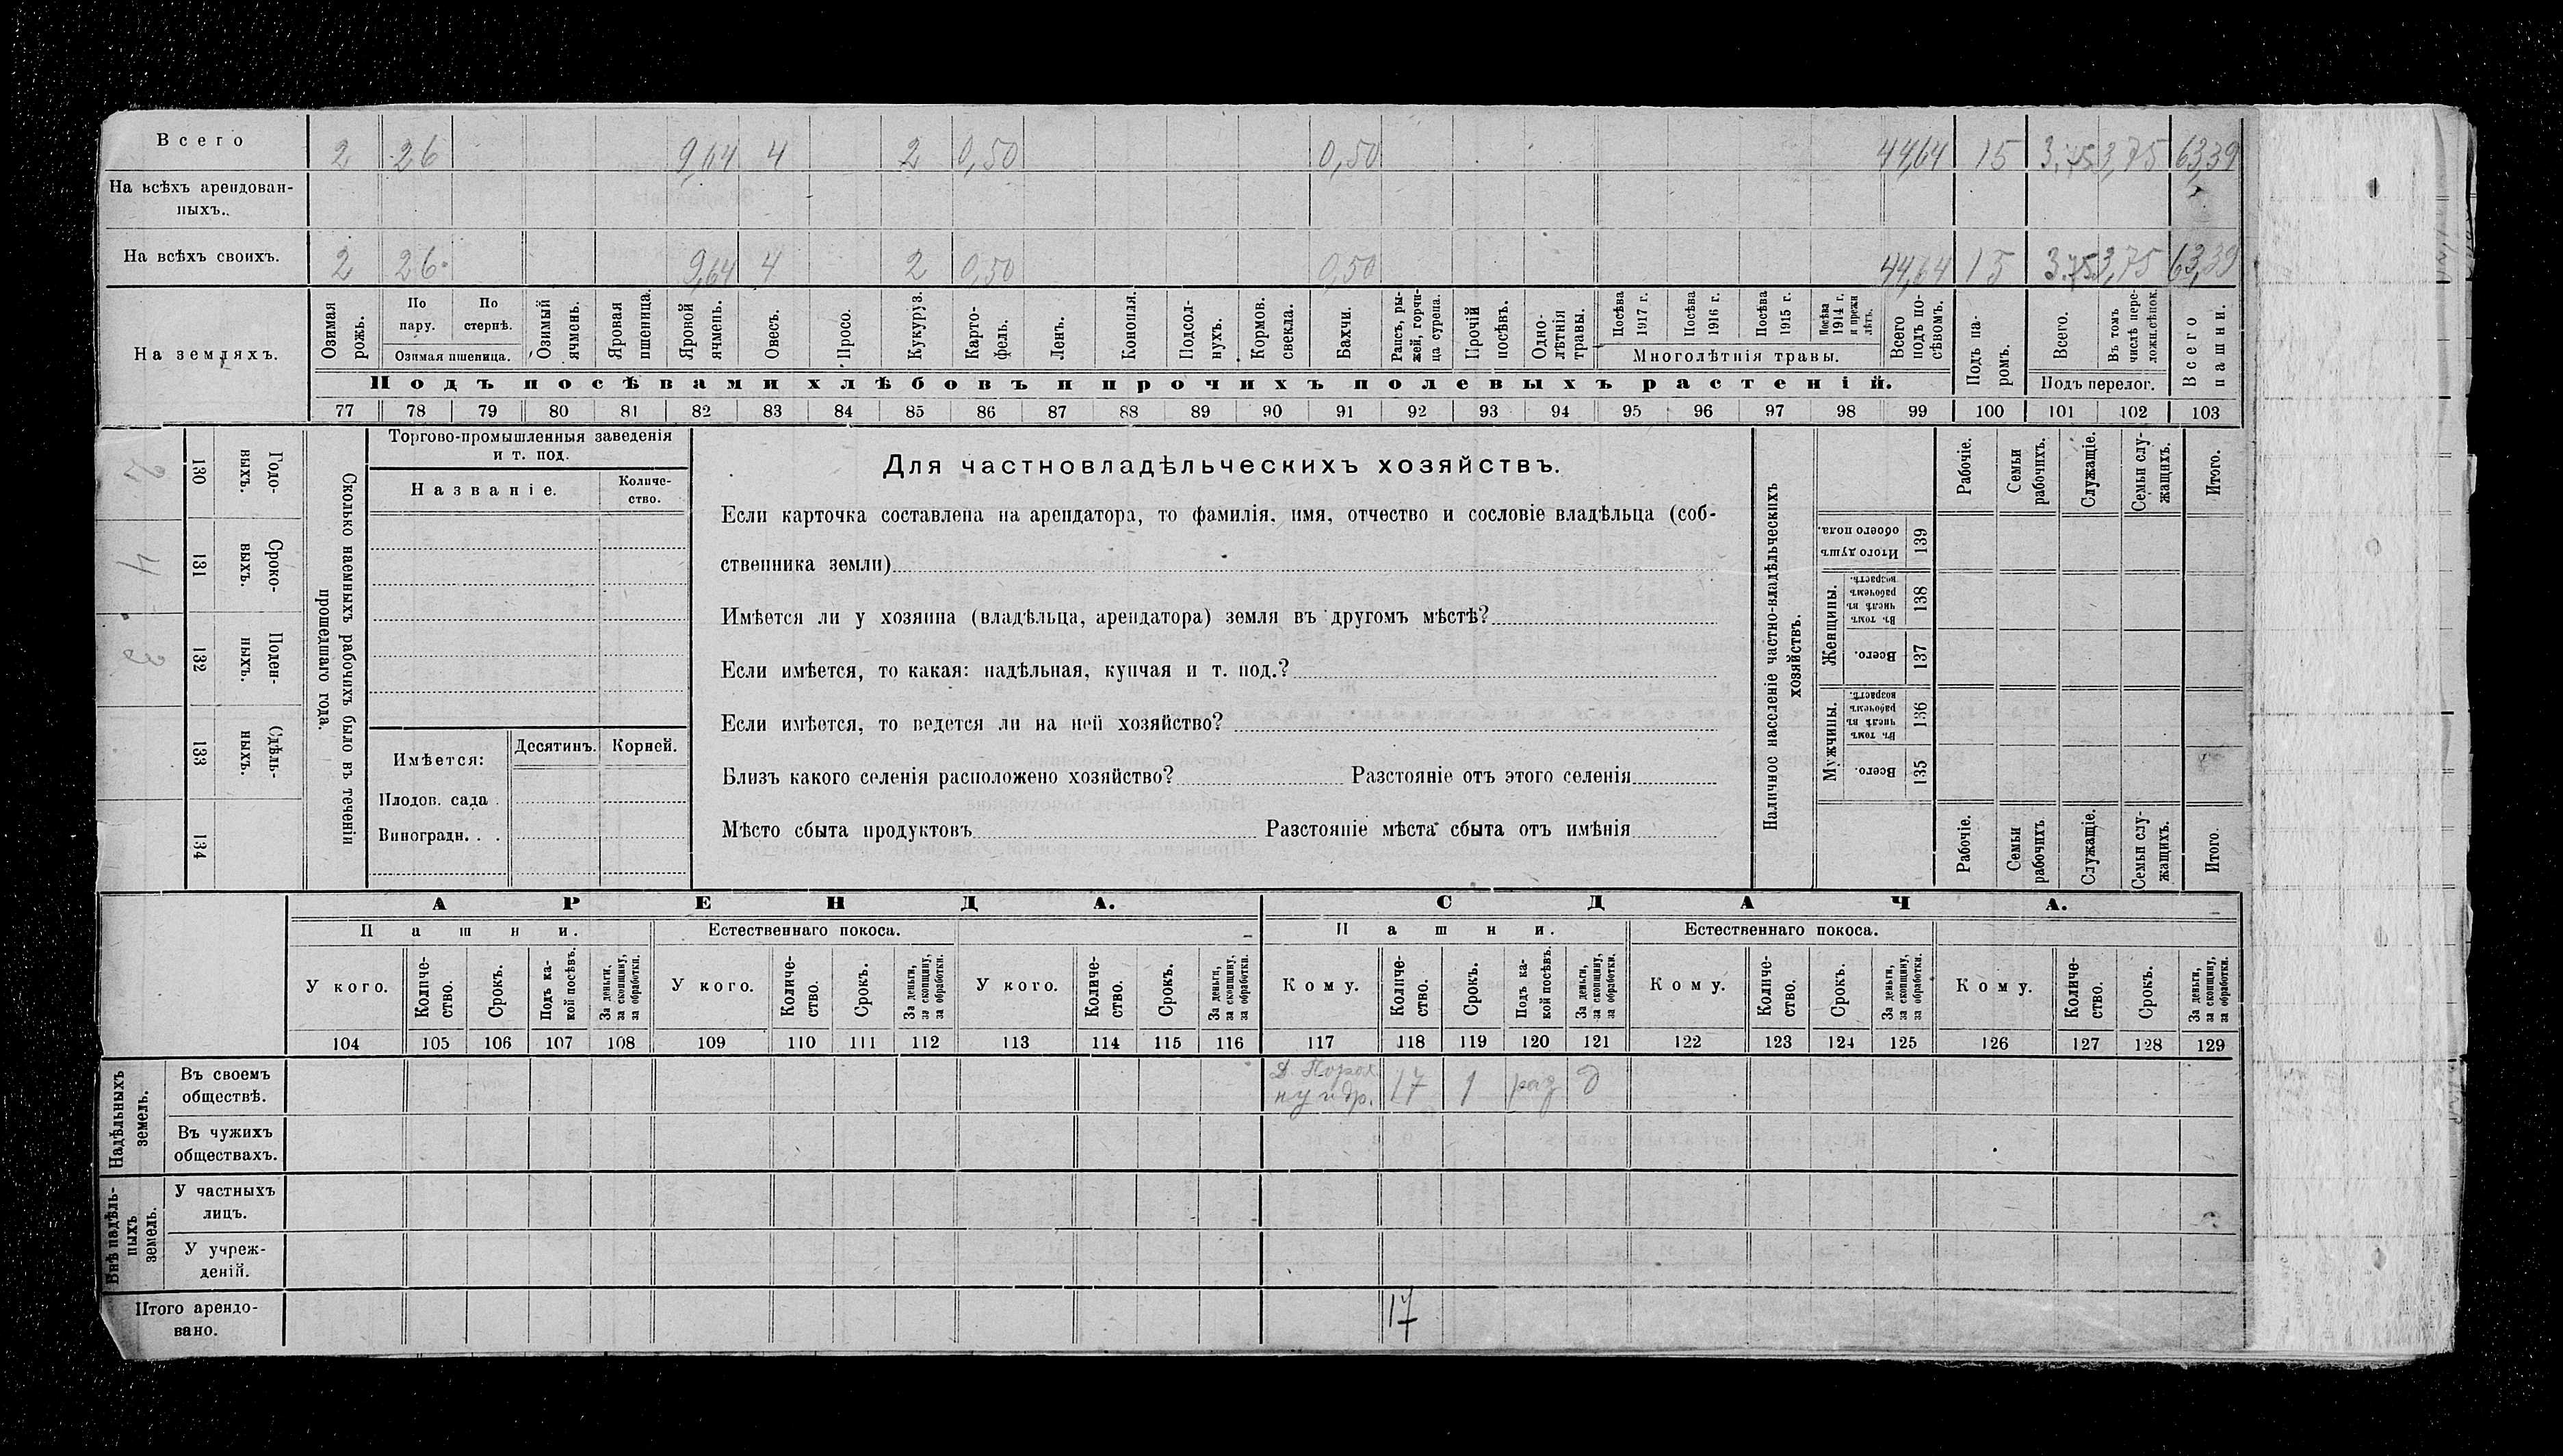 Всего 2 26 9,64 4 2 0,50 0,50 44,64 15 3,75 3,75 63,39
На всѣхъ арендован-
ныхъ..
На всѣхъ своихъ. 2 26 9,64 4 2 0,50 0,50 44,64 15 3.75 3,75 63,39
На земляхъ.
Озимая рожь.
По пару.
По стернѣ.
Озимая пшеница.
Озимый ячмень.
Яровая пшеница.
Яровой ячмень.
Овесъ.
Просо.
Кукуруз.
Карто-
фель.
Ленъ.
Конопля.
Подсол-
нухъ.
Кормов. свекла.
Бахчи.
Рапсъ, ры-
жей, горчи-
ца сурепа.
Прочій посѣвъ.
Одно-
лѣтнія травы.
Посѣва 1917 г.
Посѣва 1916 г.
Посѣва 1915 г.
Посѣва 1914 г. и прежн лѣтъ.
Многолѣтнія травы.
Всего подъ по-
сѣвомъ.
Подъ па-
ромъ.
Всего.
Въ томъ числѣ пере-
ложн.сѣнок.
Подъ перелог.
Всего пашни.
Подъ посѣвами хлѣбовъ и прочихъ полевыхъ растеній.
77 78 79 80 81 82 83 84 85 86 87 88 89 90 91 92 93 94 95 96 97 98 99 100 101 102 103
Сколько наемныхъ рабочихъ было въ теченіи
прошедшаго года.
Годо-
ныхъ.
130
2
Сроко-
выхъ.
131
4
Поден-
ныхъ.
132
3
Сдѣль-
ныхъ.
133
134
Торгово-промышленныя заведенія
и т. под.
Названіе.
Количе-
ство.
Имѣется:
Десятинъ.
Корней.
Плодов. сада .
Виноградн. . .
Для частновладѣльческихъ хозяйствъ.
Если карточка составлена на арендатора, то фамилія, имя, отчество и сословіе владѣльца (соб-
ственника земли)
Имѣется ли у хозяина (владѣльца, арендатора) земля въ другомъ мѣстѣ?
Если имѣется, то какая: надѣльная, купчая и т. под.?
Если имѣется, то ведется ли на ней хозяйство?
Близъ какого селенія расположено хозяйство? Разстояніе отъ этого селенія
Мѣсто сбыта продуктовъ Разстояніе мѣста сбыта отъ имѣнія
Наличное населеніе частно-владѣльческихъ
хозяйствъ.
Рабочіе.
Семьи рабочихъ.
Служащіе.
Семьи слу-
жащихъ.
Итого.
Итого душъ обоего пола.
139
Женщины.
Въ томъ числѣ въ рабочемъ возрастѣ.
138
Всего.
137
Мужчины.
Въ томъ числѣ въ рабочемъ возрастѣ.
136
Всего.
135
Рабочіе.
Семьи рабочихъ
Служащіе.
Семьи слу-
жащихъ.
Итого.
АРЕНДА.
СДАЧА.
Пашни.
Естественнаго покоса.
Пашни.
Естественнаго покоса.
У кого.
Количе-
ство.
Срокъ.
Подъ ка-
кой посѣвъ.
За деньги,
за скопщину,
за обработки.
У кого.
Количе-
ство.
Срокъ.
За деньги,
за скопщину,
за обработки.
У кого.
Количе-
ство.
Срокъ.
За деньги,
за скопщину,
за обработки.
Кому.
Количе-
ство.
Срокъ.
Подъ ка-
кой посѣвъ.
За деньги,
за скопщину,
за обработки.
Кому.
Количе-
ство.
Срокъ.
За деньги,
за скопщину,
за обработки.
Кому.
Количе-
ство.
Срокъ.
За деньги,
за скопщину,
за обработки.
104 105 106 107 108 109 110 111 112 113 114 115 116 117 118 119 120 121 122 123 124 125 126 127 128 129
Надѣльныхъ
земель.
Въ своемъ
обществѣ.
и др. 17 1 раз д
Въ чужихъ
обществахъ.
Внѣ надѣль-
ныхъ
земель.
У частныхъ
лицъ.
У учреж-
деній.
Итого арендо-
вано.
17